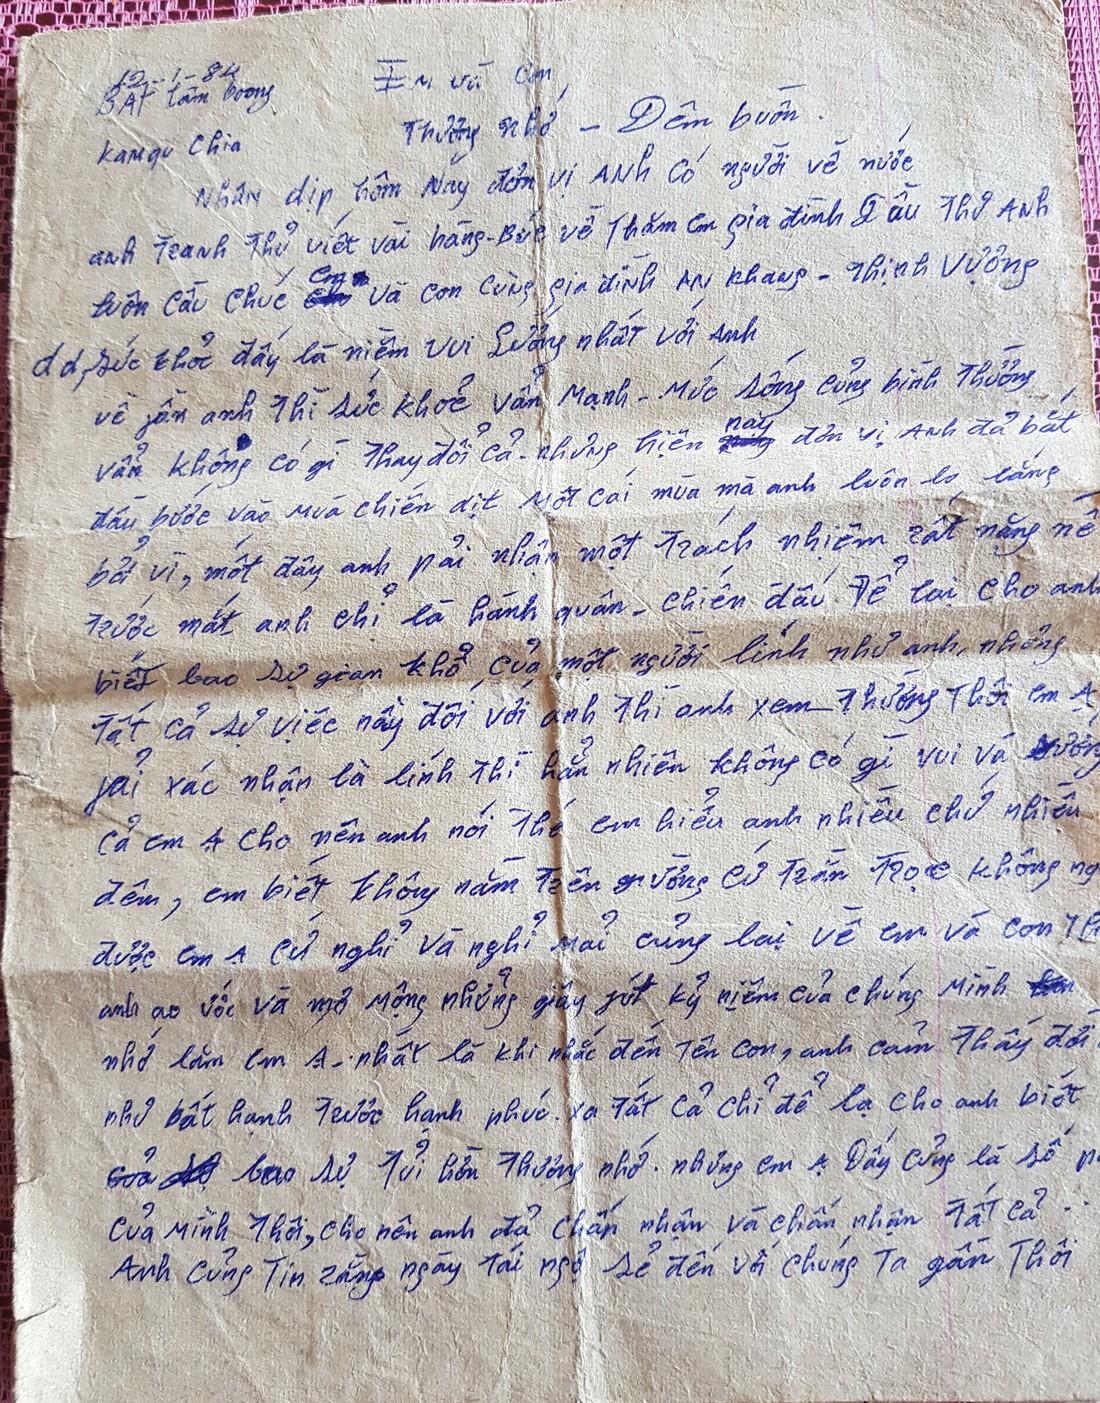 12-1-84
BAT tầm boong
Kamqu Chia
Em và Con,
Thương nhớ - Đêm buồn.
Nhân dịp hôm Nay đơn vị ANh Có người về nước
anh Tranh Thủ viết vài hàng-Bức về Thăm em gia đình Đầu Thư ANh
luôn Cầu Chúc em và con Cùng gia đình AN Khang - Thịnh Vượng
dd, Sức khoẻ đấy là niềm vui Sướng nhất với Anh
về jần anh Thì Sức khoẻ Vẫn Mạnh - Mức Sống Củng bình Thường
vẫn không Có gì Thay đổi Cả - nhưng hiện nay đơn vị ANh đả bắt
đầu bước vào Mùa chiến dịt Một Cái mùa mà anh luôn lo lắng
bởi vì, một đây anh pải nhận một Trách nhiệm rất nặng nề
Trước mắt anh chỉ là hành quân - chiến đấu. Để lại Cho anh
biết bao Sự gian khổ Của một người lính như anh, nhưng
Tất Cả Sự việc nầy đối với anh Thì anh xem Thường Thôi em Ạ
jải xác nhận là lính Thì hẳn nhiên không Có gì vui và sướng
Cả em Ạ Cho nên anh nói Thế em hiểu anh nhiều chứ nhiều
đêm, em biết không nằm Trên gường Cứ Trằn Trọc không ng
được em Ạ Cứ nghỉ và nghỉ Mải củng lại về em và con Th
anh ao ước và mơ Mộng những giây jút kỷ niệm của chúng Mình
nhớ lắm em Ạ - nhất là khi nhắc đến Tên Con, anh cảm Thấy đời
như bất hạnh Trước hạnh phúc. xa Tất Cả Chỉ để lạ Cho anh biết
bao Sự Tủi hờn Thương nhớ. nhưng em Ạ Đấy Củng là Số p
Của Mình Thôi, Cho nên anh đả Chấp nhận và chấp nhận Tất Cả..
Anh Củng Tin rằng ngày Tái ngộ Sẻ đến với chúng Ta gần Thôi